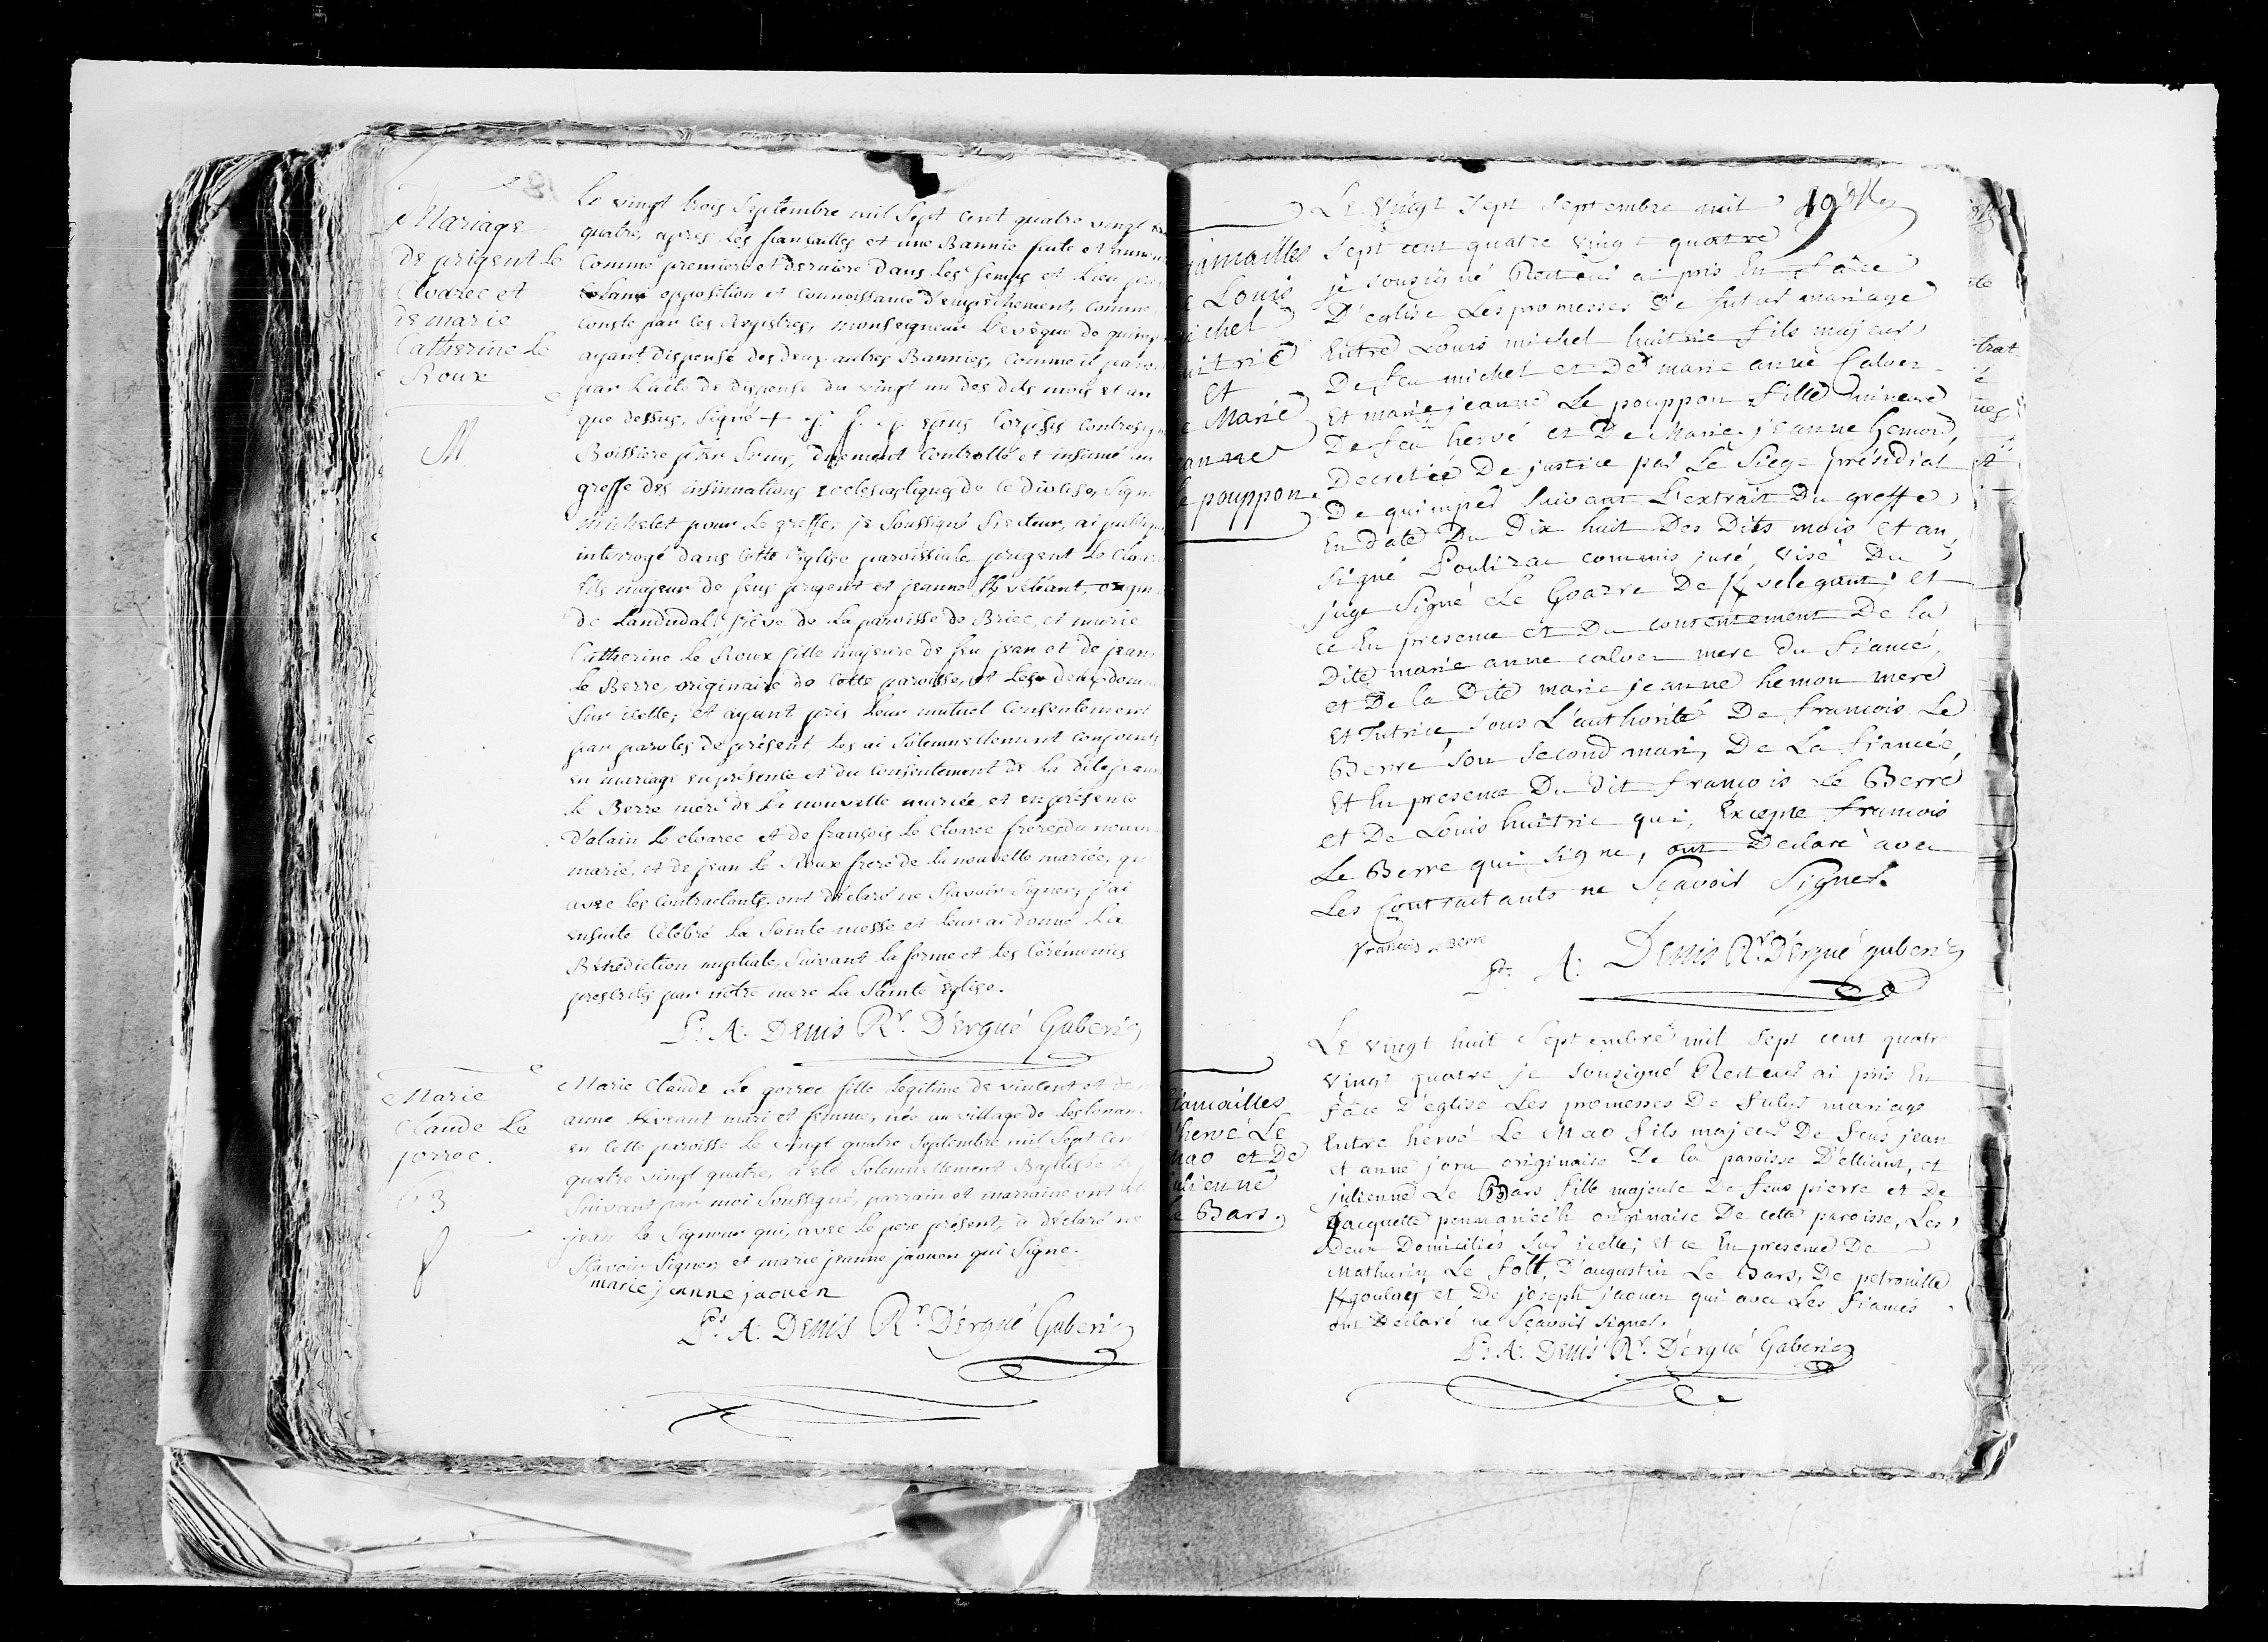 Mariage
de prigent le
Cloarec et
de marie
Catherine Le
Roux
M
Le vingt trois Septembre mil Sept cent quatre vingt
quatre, apres les fiançailles et une Bannie faite et
Comme premiere et derniere dans les tems et lieu
opposition et connoissance d'empêchement, comme
conste par les Registres, monseigneur l'evêque de
ayant dispensé des deux autres Bannies, comme il
par l'acte de dispense du vingt un des dits mois et an
que dessus, Signé +
Boissiere duement controllé et insinué au
greffe des insinuations ecclésiastiques de ce diocèse, Signé
michelet pour le greffe, je Soussigné Recteur, ai
interrogé dans cette Eglise paroissiale prigent Le
fils majeur de feus prigent et jeanne
de Landudal trêve de la paroisse de Briec, et marie
Catherine Le Roux fille majeure de feu jean et de
Le Berre, originaire de cette paroisse, et les deux
Sur icelle; et ayant pris leur mutuel Consentement
par paroles de présent les ai Solemnellement conjoints
en mariage en présence et du consentement de la dite
le Berre mere de la nouvelle mariée, et en présence
D'alain Le cloarec et de françois Le cloarec freres du
marié, et de jean Le Roux frere de la nouvelle mariée, qui
avec les Contractants ont déclaré ne Sçavoir Signer; j'ai
ensuite Célébré la Sainte messe et leur ai donné La
Bénédiction nuptiale, Suivant la forme et les Cérémonies
prescrites par nôtre mere La Sainte Eglise.
A: Denis Rr. D'Ergué Gaberic
Marie
Claude Le
gorrec.
63
Marie Claude Le gorrec fille legitime de vincent et
anne mari et femme, née au village de
en cette paroisse Le vingt quatre Septembre mil Sept cent
quatre vingt quatre, a été Solemnellement Baptisée
Suivant par moi Soussigné, parrain et marraine ont été
jean Le Signour qui, avec Le pere présent, a déclaré ne
Sçavoir Signer, et marie jeanne jaouen qui Signe.
marie jeanne jaouen
A: Denis Rr. D'Ergué Gaberic
Louis
et
Marie
Le pouppon.
19
Le vingt Sept Septembre mil
Sept cent quatre vingt quatre
je Sousigné Recteur ai pris En face
D'eglise Les promesses De futur mariage
Entre Louis michel huitric fils majeur
De feu michel et De marie anne Calvez
Et marie jeanne Le pouppon fille mineure
De feu hervé et De Marie jeanne hemon,
Decretée De justice par Le Siege présidial
De quimper Suivant L'extrait Du greffe
En date Du Dix huit Des Dits mois et an,
Signé commis juré, visé Du
juge Signé Le Goazre De Kvelegant; et
ce En presence et Du consentement De la
Dite marie anne calvez mere du fiancé,
et De la Dite marie jeanne hemon mere
et Tutrice, sous L'authorité De francois Le
Berre son second mari, De La fiancée,
Et En presence Du Dit françois Le Berre
et De Louis huitric qui, Excepte francois
Le Berre qui signe, ont Declaré avec
Les Contractants ne Sçavoir Signer.
francois Le Berre
A: Denis Rr. D'Ergué gaberic
fiancailles
hervé Le
Mao et De
julienne
Le Bars.
Le vingt huit Septembre mil Sept cent quatre
vingt quatre je Sousigné Recteur ai pris En
face D'eglise Les promesses De futur mariage
Entre hervé Le Mao fils majeur De feus jean
et anne originaire De la paroisse D'elliant, et
julienne Le Bars fille majeure De feus pierre et De
jacquette originaire De cette paroisse, Les
Deux Domiciliés Sur icelle; et ce En presence De
Mathurin Le foll, D'augustin Le Bars, De petronille
Kgoulay et De joseph jaouen qui avec Les fiancés
ont Declaré ne Sçavoir signer.
A: Denis Rr. D'Ergué Gaberic